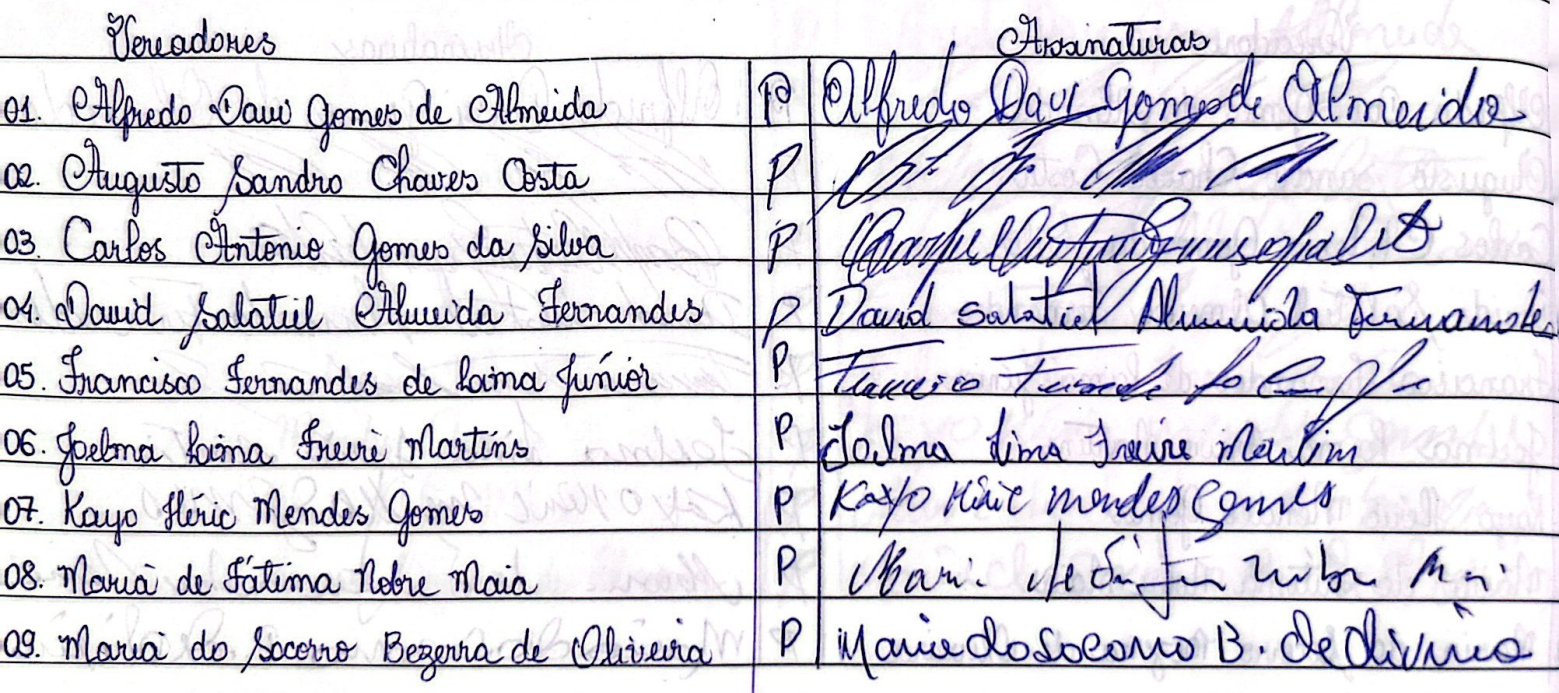 Vereadores Assinaturas
01. Alfredo Davi Gomes de Almeida P Alfredo Davi Gomes de Almeida
02. Augusto Sandro Chaves Costa P
03. Carlos Antonio Gomes da Silva P
04. David Salatiel Almeida Fernandes P David Salatiel Almeida Fernandes
05. Francisco Fernandes de Lima Júnior P Francisco
06. Joelma Lima Freire Martins P Joelma Lima Freire Martins
07. Kayo Héric Mendes Gomes P Kayo Héric Mendes Gomes
08. Maria de Fátima Nobre Maia P Maria de Fátima Nobre
09. Maria do Socorro Bezerra de Oliveira P Maria do Socorro B. de Oliveira